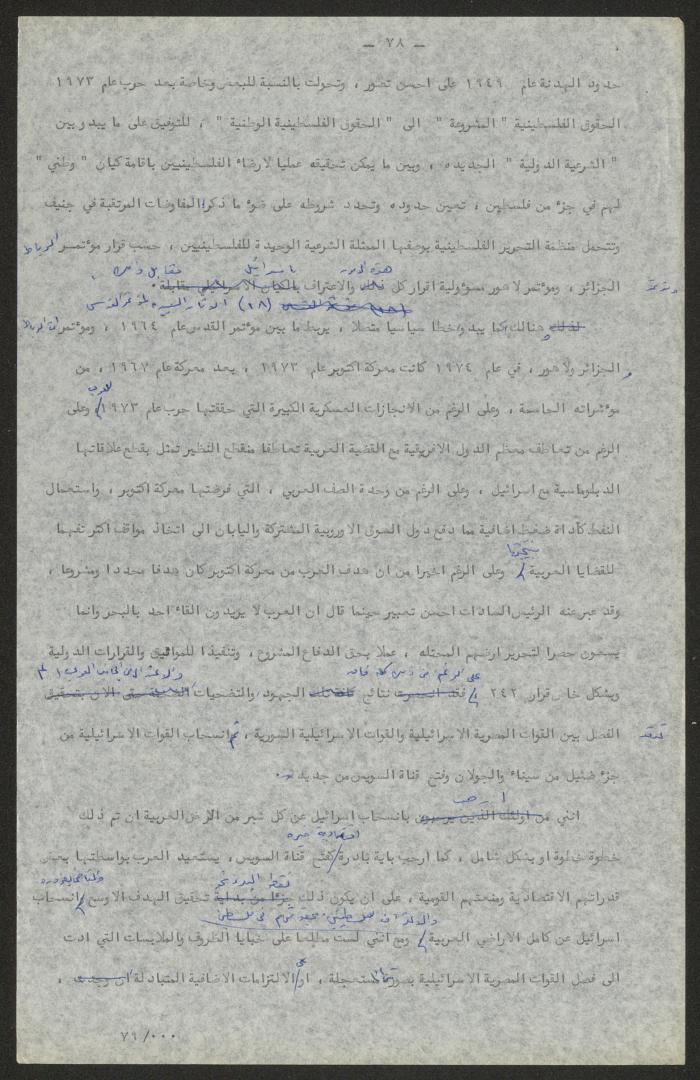 - ٧٨ -
حدود الهدنة عام ١٩٤٩ على احسن تصور ، وتحولت بالنسبة للبعض وخاصة بعد حرب عام ١٩٧٣
الحقوق الفلسطينية " المشروعة " الى " الحقوق الفلسطينية الوطنية " ، للتوفيق على ما يبدو بين
" الشرعية الدولية " الجديده ، وبين ما يمكن تحقيقه عمليا لارضاء الفلسطينيين باقامة كيان " وطني "
لهم في جزء من فلسطين ، تعيين حدوده وتحدد شروطه على ضوء ما ذكر المفاوضات المرتقبة في جنيف
وتتحمل منظمة التحرير الفلسطينية بوصفها الممثلة الشرعية الوحيدة للفلسطينيين ، حسب قرار مؤتمر الرباط
هذه الامور باسرائيل
الجزائر ، ومؤتمر لاهور مسؤولية اقرار كل ذلك والاعتراف بالكيان الاسرائيلي مقابله .
(١٨)
لذلك هنالك كما يبدو خطا سياسيا متصلا ، يربط ما بين مؤتمر القدس عام ١٩٦٤ ، ومؤتمرات الرباط
والجزائر ولاهور ، في عام ١٩٧٤ كانت معركة اكتوبر عام ١٩٧٣ ، بعد معركة عام ١٩٦٧ ، من
العرب
مؤشراته الحاسمة ، وعلى الرغم من الانجازات العسكرية الكبيرة التي حققتها حرب عام ١٩٧٣ وعلى
الرغم من تعاطف معظم الدول الافريقية مع القضية العربية تعاطفا منقطع النظير تمثل بقطع علاقاتها
الدبلوماسية مع اسرائيل ، وعلى الرغم من وحدة الصف العربي ، التي فرضتها معركة اكتوبر ، واستعمال
النفط كأداة ضغط اضافية مما دفع دول السوق الاوروبية المشتركة واليابان الى اتخاذ مواقف اكثر تفهما
للقضايا العربية وعلى الرغم اخيرا من ان هدف العرب من معركة اكتوبر كان هدفا محددا ومشروعا ،
وقد عبر عنه الرئيس السادات احسن تعبير حينما قال ان العرب لا يريدون القاء احد بالبحر وانما
يسعون حصرا لتحرير ارضهم المحتله ، عملا بحق الدفاع المشروع ، وتنفيذا للمواثيق والقرارات الدولية
على الرغم من ذلك كله فان
وبشكل خاص قرار ٢٤٢ فقد نتائج الجهود والتضحيات الان بتحقيق
الفصل بين القوات المصرية الاسرائيلية والقوات الاسرائيلية السورية ، ثم انسحاب القوات الاسرائيلية من
جزء ضئيل من سيناء والجولان وفتح قناة السويس من جديد .
ارحب
انني من اولئك الذين يرحبون بانسحاب اسرائيل عن كل شبر من الارض العربية ان تم ذلك
اقتصادية
خطوة خطوة او بشكل شامل ، كما ارحب باية بادرة كفتح قناة السويس ، يستعيد العرب بواسطتها بعض
قدراتهم الاقتصادية ومنعتهم القومية ، على ان يكون ذلك جزءا من بداية تحقيق الهدف الاوسع انسحاب
اسرائيل عن كامل الاراضي العربية ومع انني لست مطلعا على خبايا الظروف والملابسات التي ادت
الى فصل القوات المصرية الاسرائيلية بصورتها المستعجلة ، او الالتزامات الاضافية المتبادلة ان وجدت ،
٧٩/٠٠٠